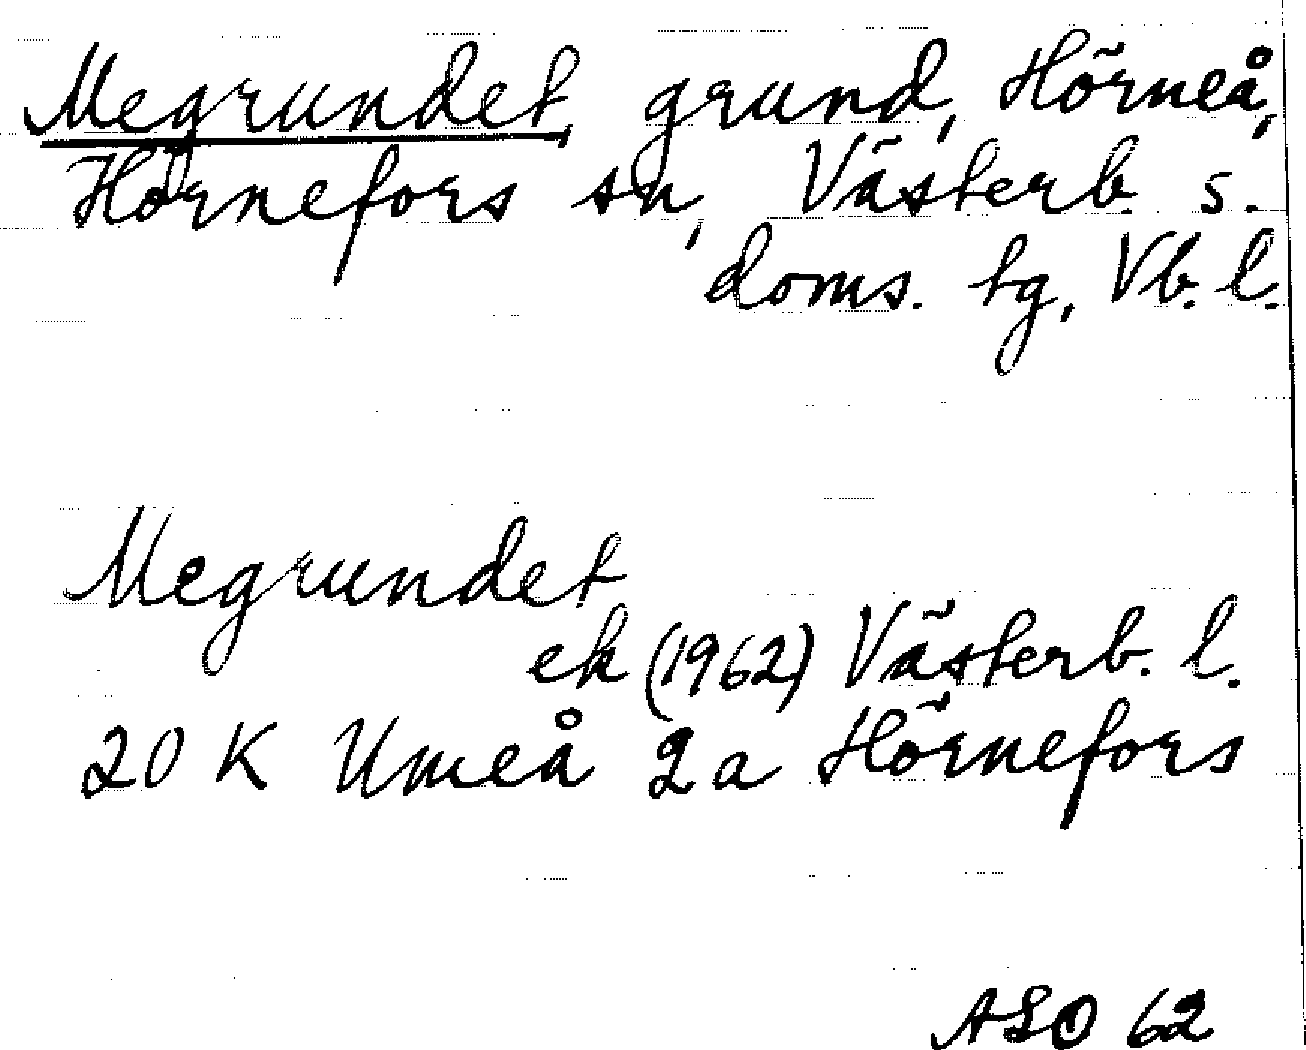 Megrundet, grund, Hörneå,
Hörnefors sn, Västerb. s.
doms. tg, Vb. l.
Megrundet
ek (1962) Västerb. l.
20 K Umeå 2a Hörnefors
ALO 62